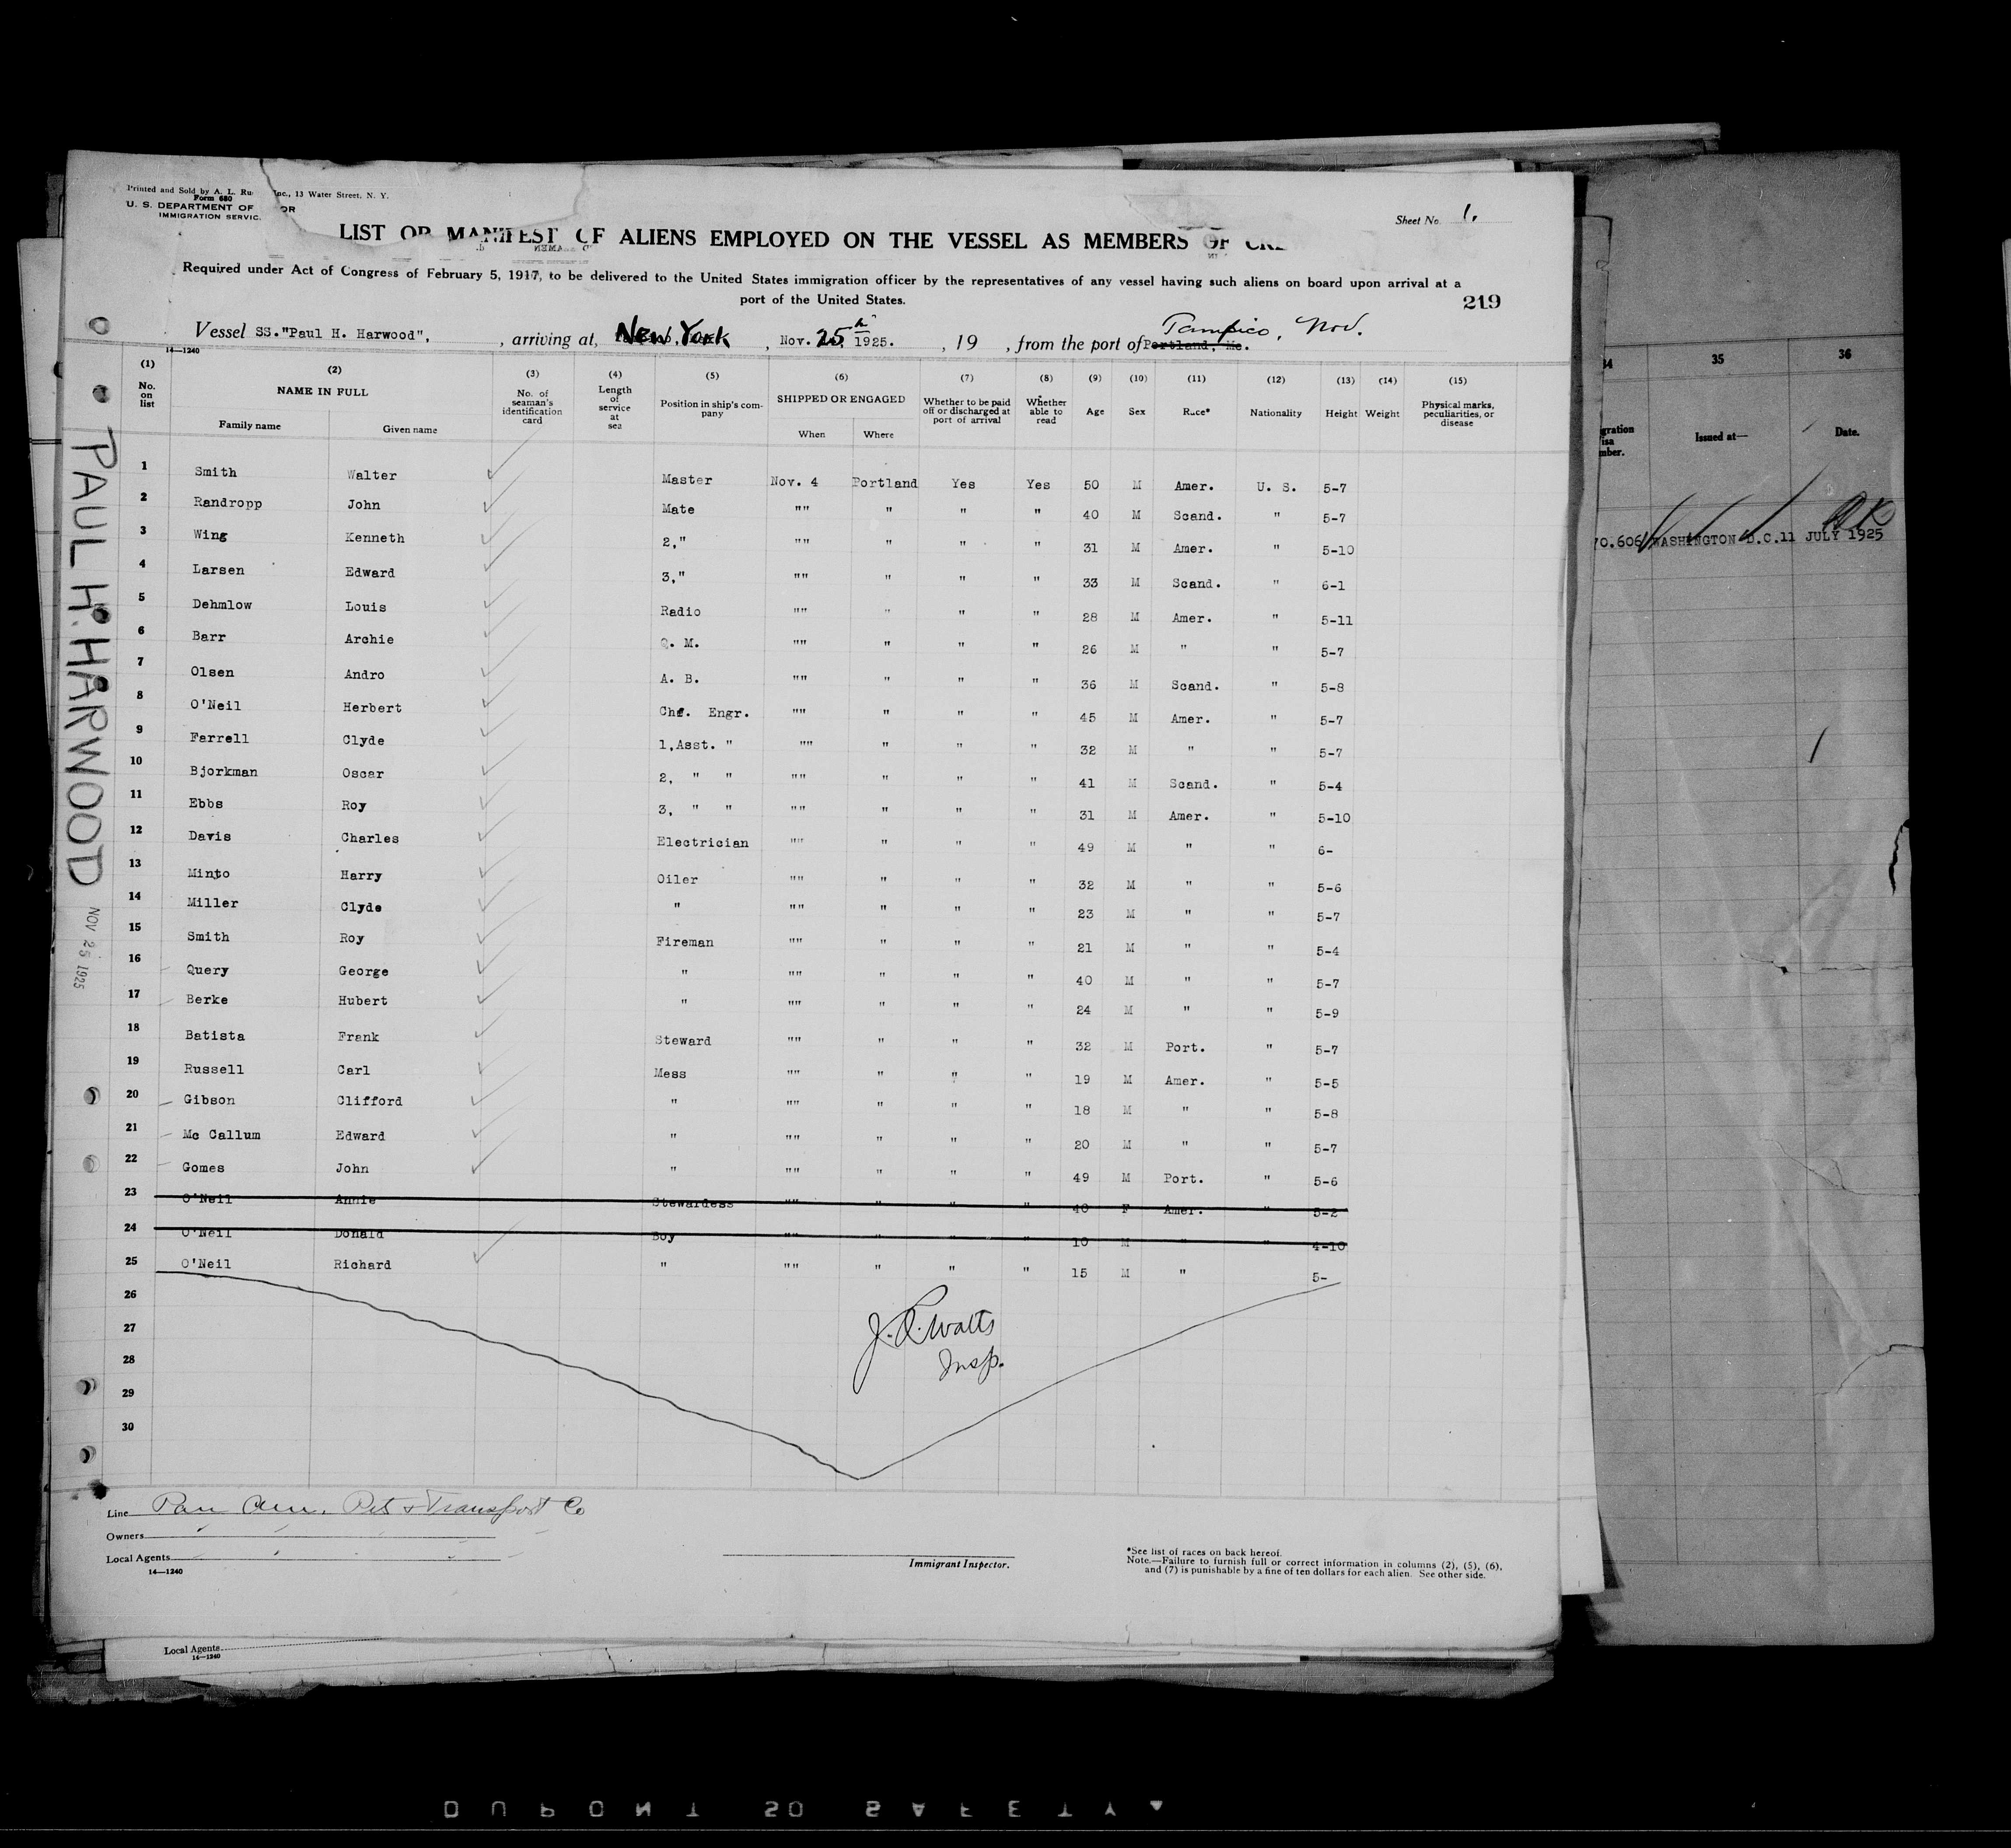 Printed and Sold by A. L. Ru Inc., 13 Water Street, N. Y.
Form 680
U. S. DEPARTMENT OF OR
IMMIGRATION SERVIC
Sheet No. 1.
LIST OR MANIFEST OF ALIENS EMPLOYED ON THE VESSEL AS MEMBERS OF CRE
Required under Act of Congress of February 5, 1917, to be delivered to the United States immigration officer by the representatives of any vessel having such aliens on board upon arrival at a
port of the United States.
219
Vessel SS."Paul H. Harwood", , arriving at, New York , Nov. 25th 1925. , 19 , from the port of Portland, Me. Tampico, Nov.
14—1240
(1) (2) (3) (4) (5) (6) (7) (8) (9) (10) (11) (12) (13) (14) (15)
No. on list NAME IN FULL Family name Given name No. of seaman's identification card Length of service at sea Position in ship's company SHIPPED OR ENGAGED When Where Whether to be paid off or discharged at port of arrival Whether able to read Age Sex Race* Nationality Height Weight Physical marks, peculiarities, or disease
1 Smith Walter Master Nov. 4 Portland Yes Yes 50 M Amer. U. S. 5-7
2 Randropp John Mate "" " " " 40 M Scand. " 5-7
3 Wing Kenneth 2," "" " " " 31 M Amer. " 5-10
4 Larsen Edward 3," "" " " " 33 M Scand. " 6-1
5 Dehmlow Louis Radio "" " " " 28 M Amer. " 5-11
6 Barr Archie Q. M. "" " " " 26 M " " 5-7
7 Olsen Andro A. B. "" " " " 36 M Scand. " 5-8
8 O'Neil Herbert Chf. Engr. "" " " " 45 M Amer. " 5-7
9 Farrell Clyde 1,Asst. " "" " " " 32 M " " 5-7
10 Bjorkman Oscar 2, " " "" " " " 41 M Scand. " 5-4
11 Ebbs Roy 3, " " "" " " " 31 M Amer. " 5-10
12 Davis Charles Electrician "" " " " 49 M " " 6-
13 Minto Harry Oiler "" " " " 32 M " " 5-6
14 Miller Clyde " "" " " " 23 M " " 5-7
15 Smith Roy Fireman "" " " " 21 M " " 5-4
16 Query George " "" " " " 40 M " " 5-7
17 Berke Hubert " "" " " " 24 M " " 5-9
18 Batista Frank Steward "" " " " 32 M Port. " 5-7
19 Russell Carl Mess "" " " " 19 M Amer. " 5-5
20 Gibson Clifford " "" " " " 18 M " " 5-8
21 Mc Callum Edward " "" " " " 20 M " " 5-7
22 Gomes John " "" " " " 49 M Port. " 5-6
23 O'Neil Annie Stewardess "" " " " 40 F Amer. " 5-2
24 O'Neil Donald Boy "" " " " 10 M " " 4-10
25 O'Neil Richard " "" " " " 15 M " 5-
26
27
28
29
30
J. R. Watts
Insp.
Line Pan Am. Pet & Transport Co
Owners
Local Agents
14—1240
Immigrant Inspector.
*See list of races on back hereof.
Note.—Failure to furnish full or correct information in columns (2), (5), (6),
and (7) is punishable by a fine of ten dollars for each alien. See other side.
PAUL H. HARWOOD
NOV 25 1925
34 35 36
gration
isa
mber.
Issued at—
Date.
OK
70.606 WASHINGTON D.C. 11 JULY 1925
Local Agents
14—1240
DUPONT 50 SAFETY